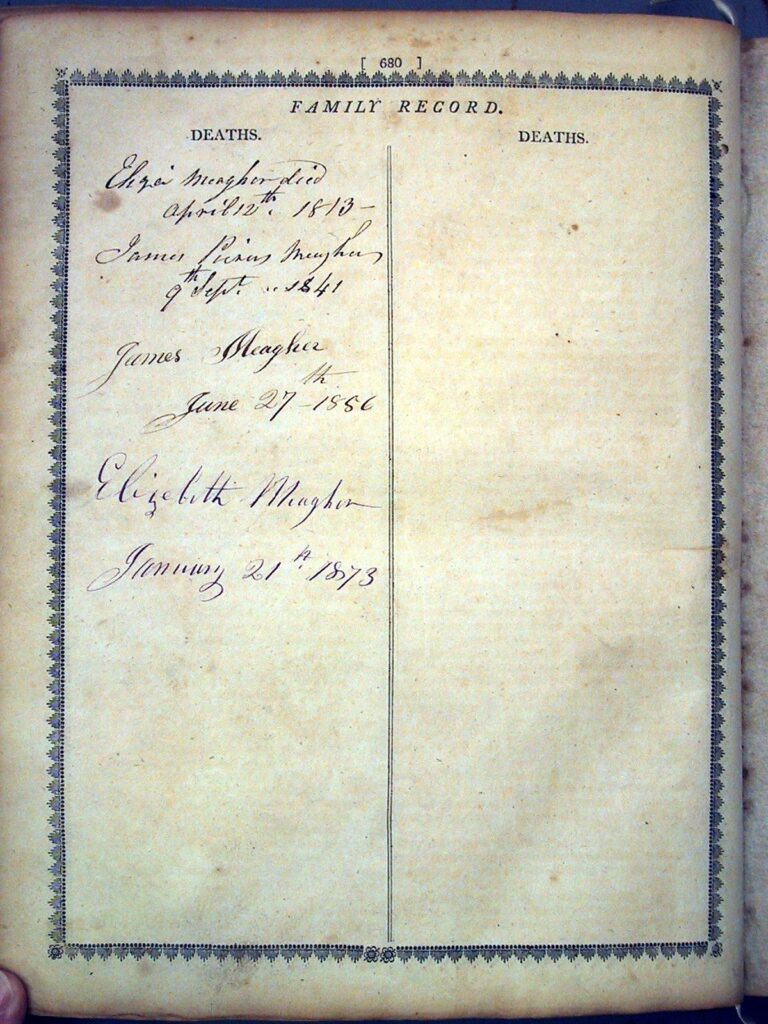 [ 680 ]
FAMILY RECORD.
DEATHS.
Eliza Meagher died
April 12th. 1813 -
James Meagher
9th Sept. .. 1841
James Meagher
June 27th - 1856
Elizebith Meagher
January 21st. 1873
DEATHS.